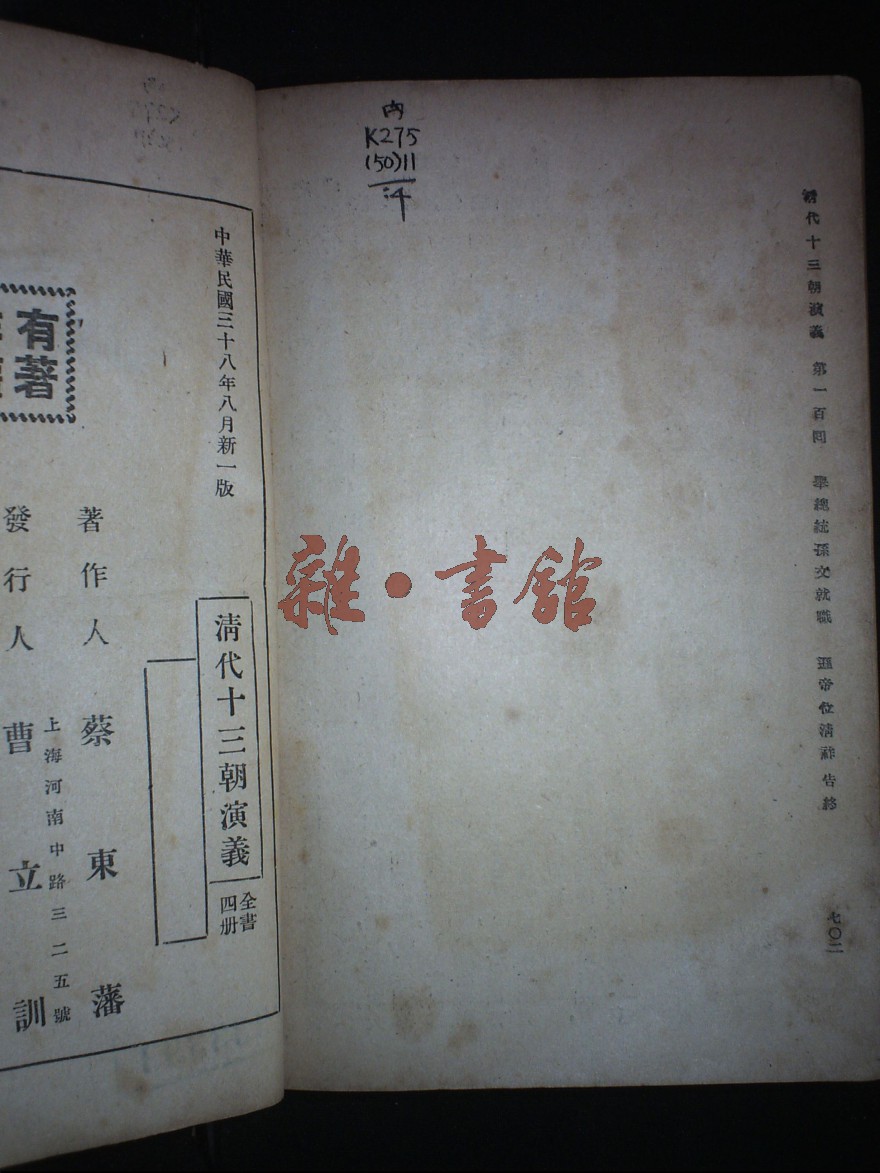 内
K275
(50)11
:4
清代十三朝演義　第一百回　舉總統孫文就職　遜帝位清祚告終
七〇二
雜·書館
中華民國三十八年八月新一版
清代十三朝演義
全書
四册
有著
著作人　蔡東藩
上海河南中路三二五號
發行人　曹立訓